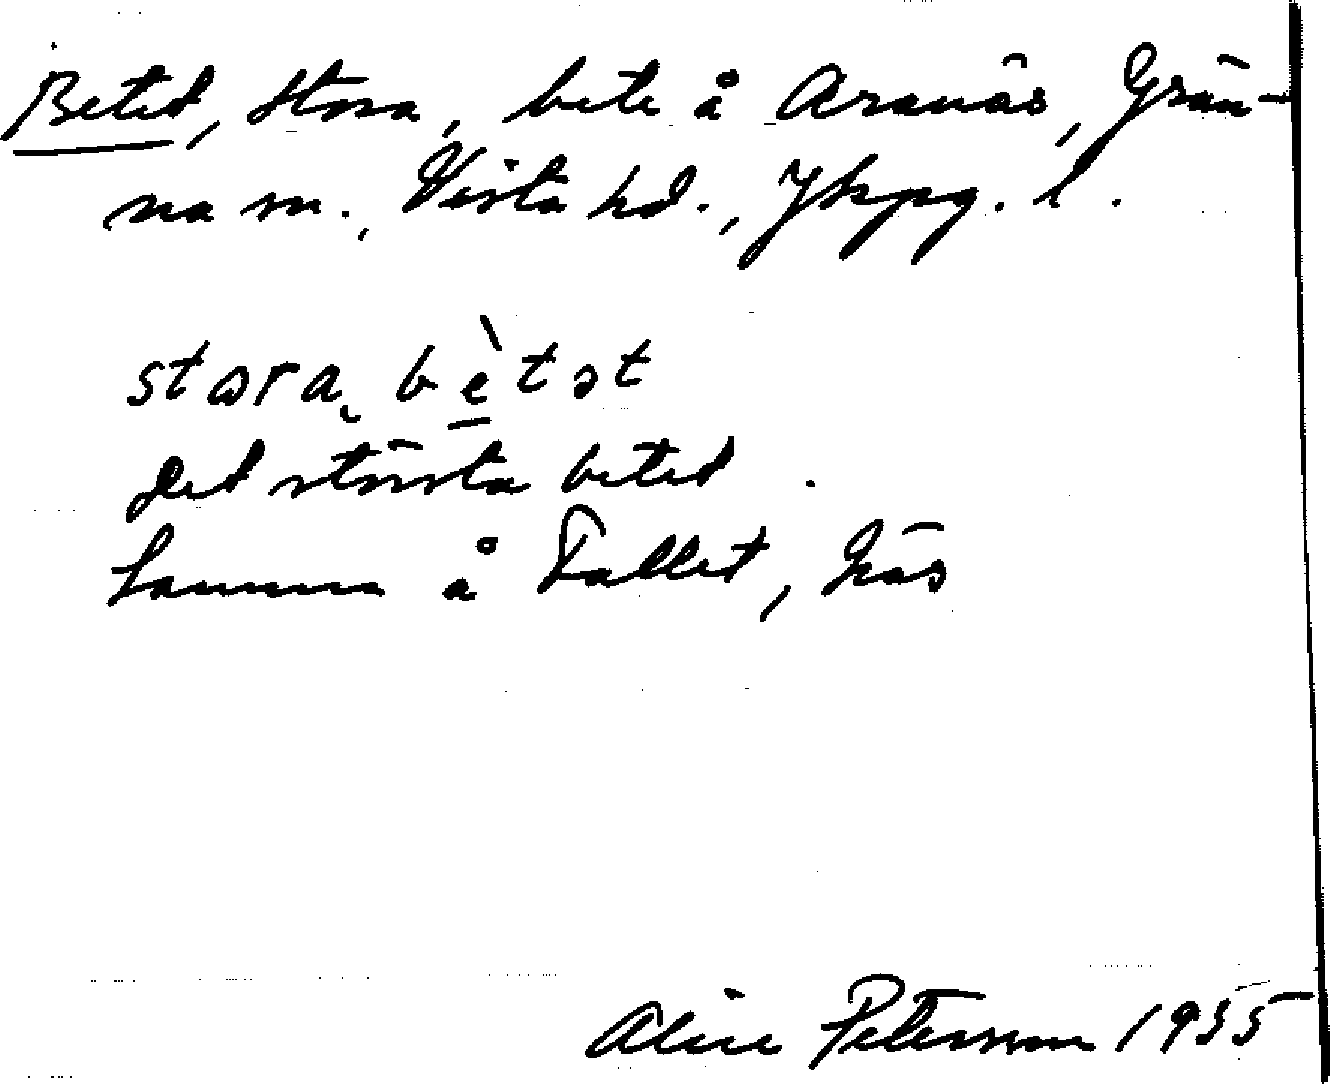 Betet, Stora, bete å Aranäs, Grän-
na sn., Vista hd., Jkpg. l.
stωra bètət
Det största betet.
Samma å Fallet, Kås
Alice Petersson 1935